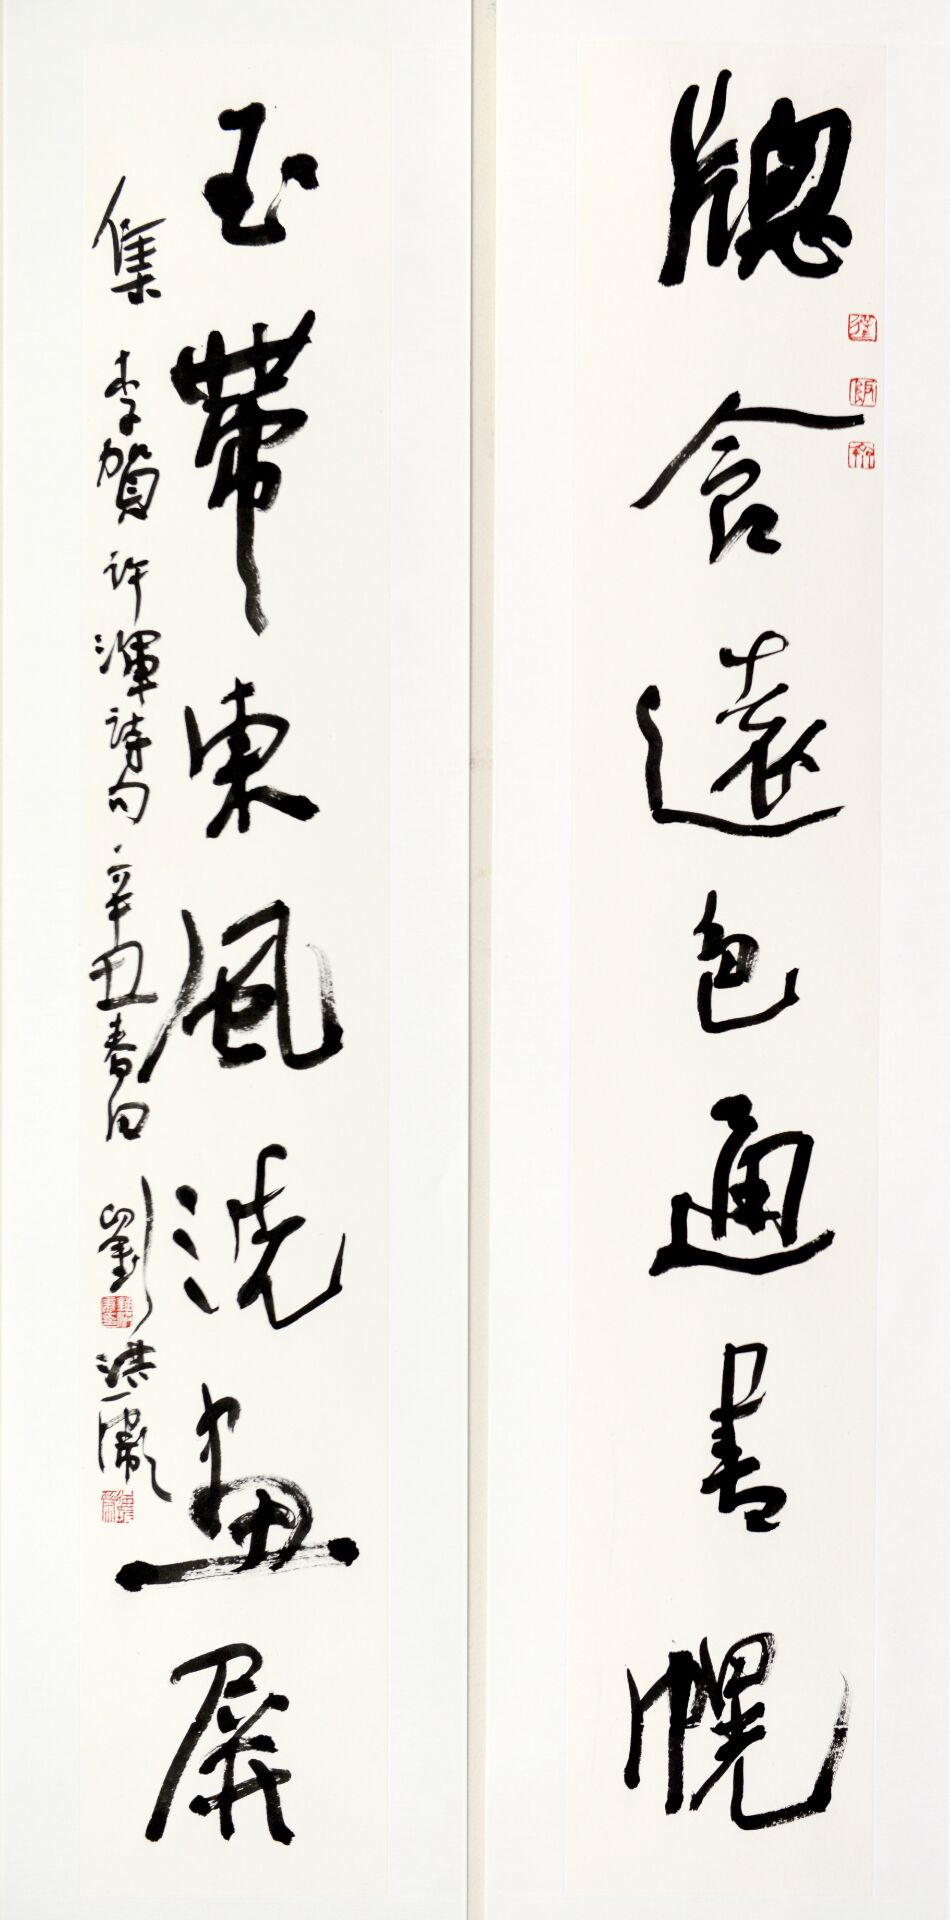 牕含遠色通書幌
玉帶東風洗畫屏
集李賀許渾詩句 辛丑春日 劉洪